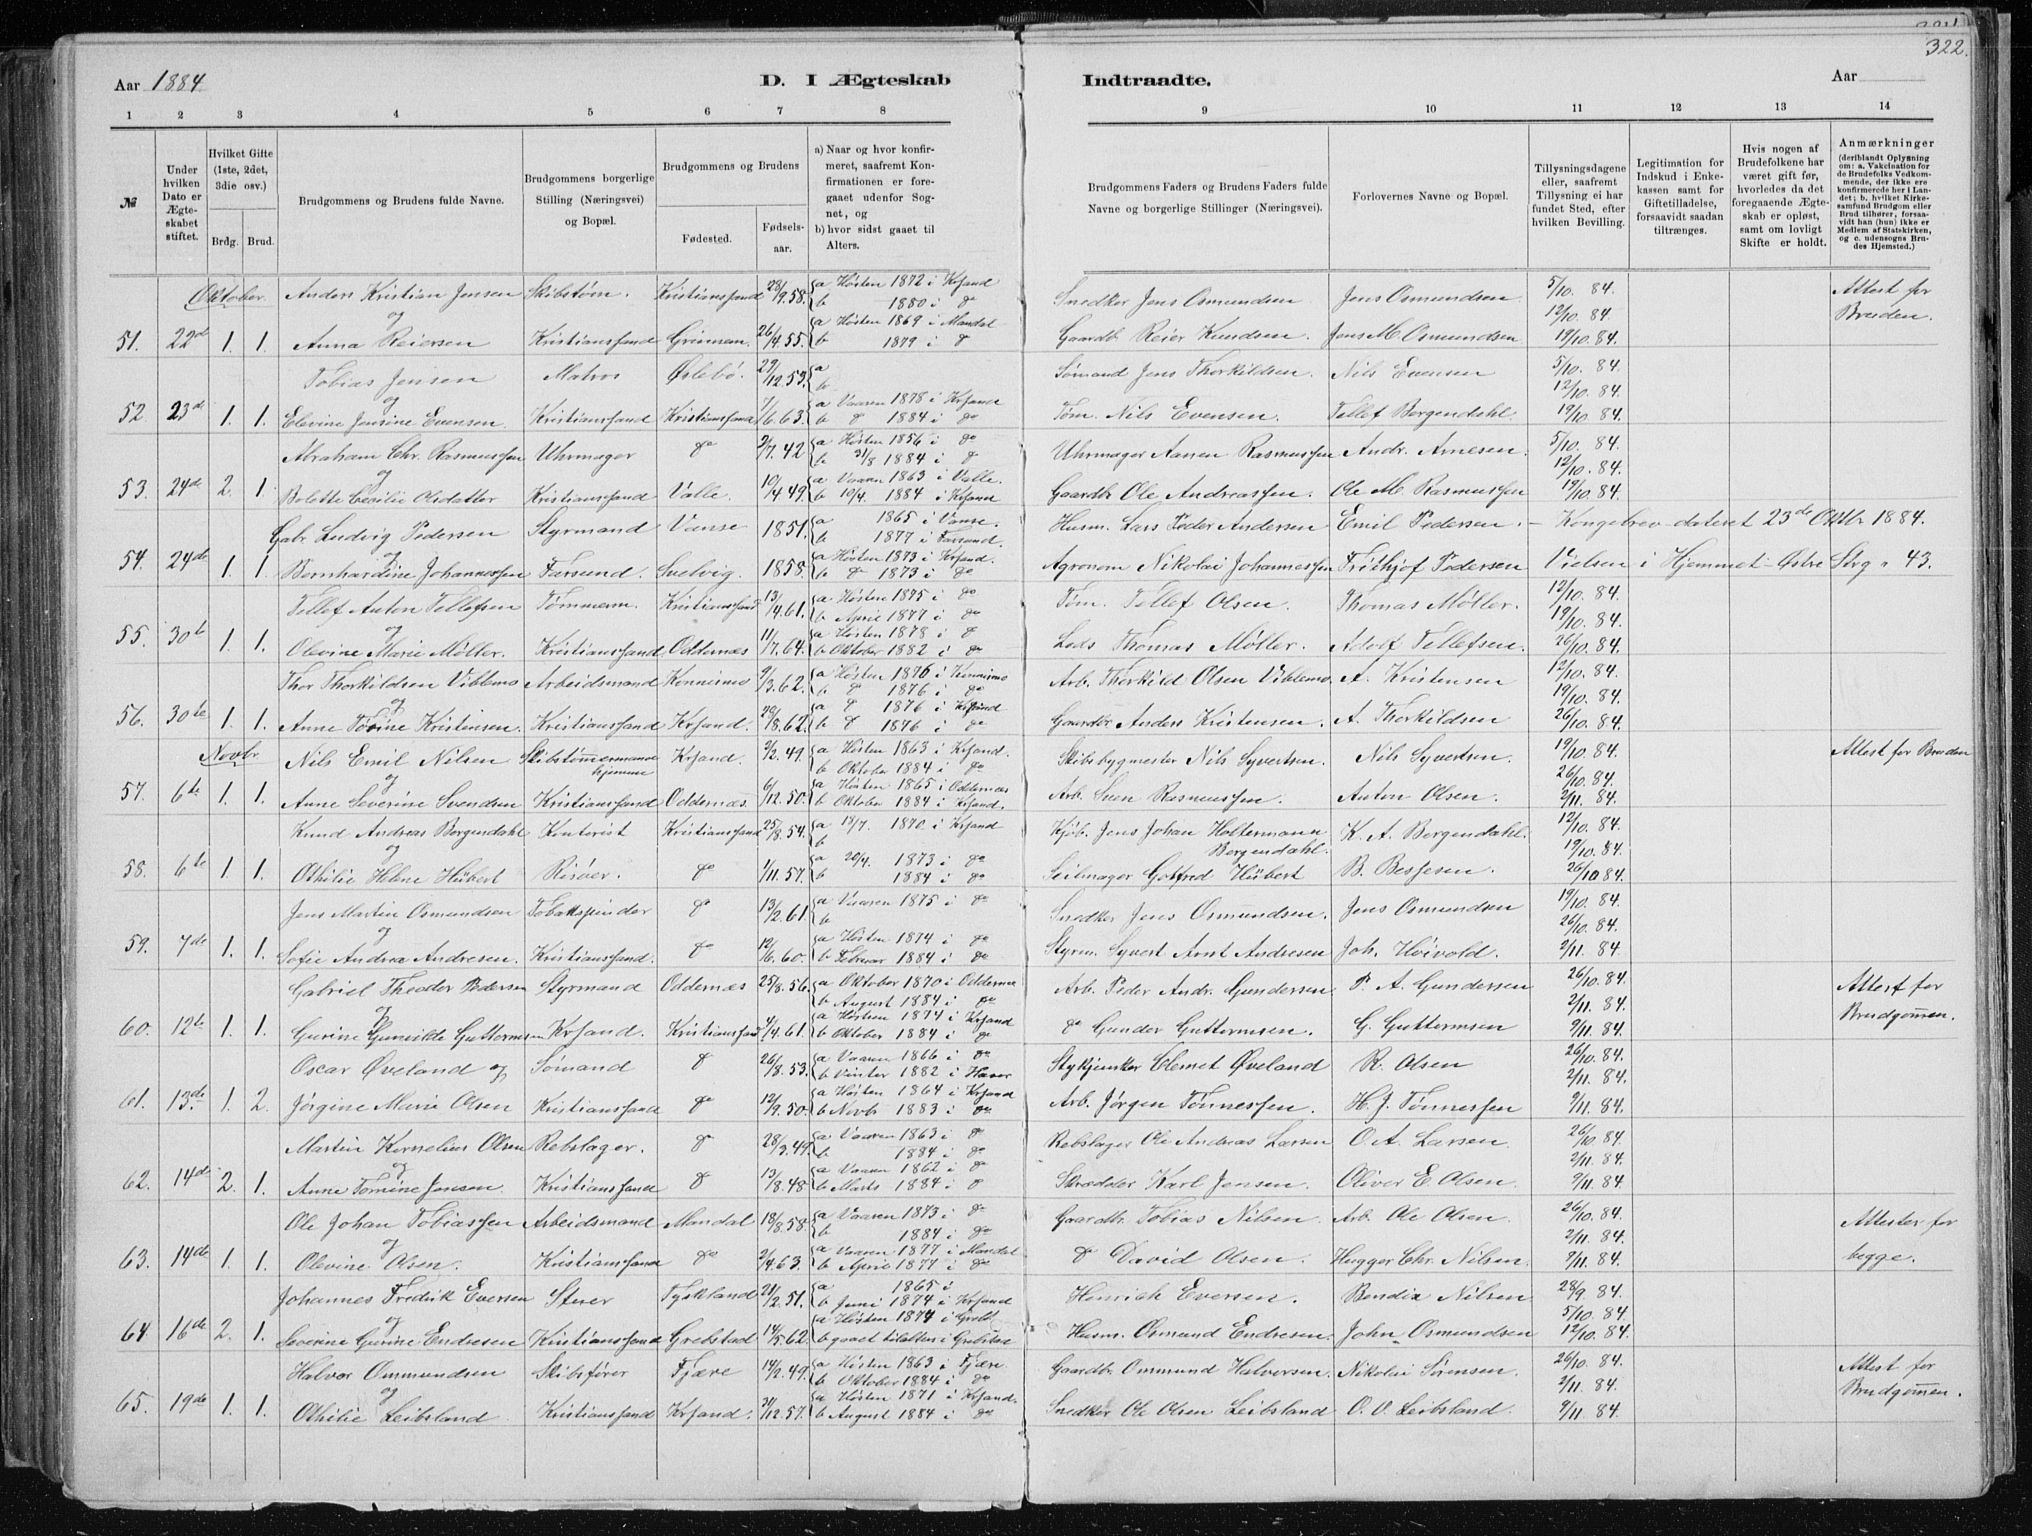 322.
Aar 1884. D. I Ægteskab Indtraadte. Aar
1 2 3 4 5 6 7 8 9 10 11 12 13 14
№
Under hvilken Dato er Ægteskabet stiftet.
Hvilket Gifte (1ste, 2det, 3die osv.)
Brdg. Brud.
Brudgommens og Brudens fulde Navne.
Brudgommens borgerlige Stilling (Næringsvei) og Bopæl.
Brudgommens og Brudens
Fødested. Fødselsaar.
a) Naar og hvor konfirmeret, saafremt Konfirmationen er foregaaet udenfor Sognet, og
b) hvor sidst gaaet til Alters.
Brudgommens Faders og Brudens Faders fulde Navne og borgerlige Stillinger (Næringsvei).
Forlovernes Navne og Bopæl.
Tillysningsdagene eller, saafremt Tillysning ei har fundet Sted, efter hvilken Bevilling.
Legitimation for Indskud i Enkekassen samt for Giftetilladelse, forsaavidt saadan tiltrænges.
Hvis nogen af Brudefolkene har været gift før, hvorledes da det foregaaende Ægteskab er opløst, samt om lovligt Skifte er holdt.
Anmærkninger (deriblandt Oplysning om: a. Vakcination for de Brudefolks Vedkommende, der ikke ere konfirmerede her i Landet; b. hvilket Kirkesamfund Brudgom eller Brud tilhører, forsaavidt han (hun) ikke er Medlem af Statskirken, og c. udensogns Brudes Hjemsted.)
Oktober. Anders Kristian Jensen Skibstøm. Kristianssand 28/9.58. a Høsten 1872 i Krsand b 1880 i do Snedker Jens Osmundsen Jens Osmundsen 5/10. 84. Attest for
og 12/10. 84. Bruden.
51. 22de 1. 1. Anna Reiersen Kristianssand 26/4.55. a Høsten 1869 i Mandal b 1879 i do Gaardb. Reier Knudsen. Jens M. Osmundsen 19/10. 84.
Tobias Jensen Matros Øslebø. 29/12.59. a b Sømand Jens Thorkildsen. Nils Evensen 5/10. 84.
og 12/10. 84.
52 23de 1. 1. Elevine Jensine Evensen. Kristianssand Kristianssand 7/6.63. a Vaaren 1878 i Krsand b do 1884 i do Tøm. Nils Evensen. Tellef Bergendahl. 19/10. 84.
Abraham Chr. Rasmussen Uhrmager do 2/7.42 a Høsten 1856 i do b 31/8 1884 i do Uhrmager Aanen Rasmussen Andr. Arnesen. 5/10. 84.
og 12/10. 84.
53. 24de 2. 1. Bolette Cecilie Olsdatter Kristianssand Valle. 10/4.49. a Vaaren 1863 i Valle. b 10/4. 1884 i Krsand Gaardb. Ole Andreassen. Ole M. Rasmussen 19/10. 84.
Gabr. Ludvig Pedersen Styrmand Vanse 1851. a 1865 i Vanse. b 1877 i Farsund. Husm. Lars Peder Andersen Emil Pedersen. – Kongebrev dateret 23de Oktbr 1884.
og
54. 24de 1. 1. Bernhardine Johannessen Farsund. Svelvig. 1858. a Høsten 1873 i Krsand. b do 1873 i do Agronom Nikolai Johannessen Frithjof Pedersen Vielsen i Hjemmet – Østre Strg. 43.
Tellef Anton Tellefsen Tømmerm. Kristianssand 13/4.61. a Høsten 1875 i do b April 1877 i do Tøm. Tellef Olsen. Thomas Møller. 12/10. 84.
og 19/10. 84.
55. 30te 1. 1. Olevine Marie Møller. Kristianssand Oddernæs 11/7.64. a Høsten 1878 i do b Oktober 1882 i do Lods Thomas Møller. Adolf Tellefsen. 26/10. 84.
Thor Thorkildsen Viblemo Arbeidsmand Konnismo 9/3.62. a Høsten 1876 i Konnismo b do 1876 i do Arb. Thorkild Olsen Viblemo. A. Kristensen 12/10. 84.
og 19/10. 84.
56. 30te 1. 1. Anne Tovine Kristensen. Kristianssand Krsand. 29/8.62. a do 1876 i Krsand b do 1876 i do Gaardbr. Anders Kristensen. A. Thorkildsen 26/10. 84.
Novbr Nils Emil Nilsen Skibstømmermand hjemme Krsand. 9/2.49. a Høsten 1863 i Krsand. b Oktober 1884 i do Skibsbygmester Nils Syvertsen. Nils Syvertsen 19/10. 84. Attest for Bruden
og 26/10. 84.
57. 6te 1. 1. Anne Severine Svendsen Kristianssand Oddernæs. 6/12.50. a Høsten 1865 i Oddernæs b Oktober 1884 i Krsand. Arb. Sven Rasmussen. Anton Olsen. 2/11. 84.
Knud Andreas Bergendahl Kontorist Kristianssand 25/8.54. a 13/7. 1870 i Krsand b Kjøb. Jens Johan Holtermann Bergendahl. K. A. Bergendahl. 12/10. 84.
og 19/10. 84.
58. 6te 1. 1. Othilie Helene Hübert Risøer. do 1/11.57. a 20/4. 1873 i do b 1884 i do Seilmager Gotfred Hübert B. Bessesen. 26/10 84.
Jens Martin Osmundsen Tobakspinder do 13/2.61. a Vaaren 1875 i do b Snedker Jens Osmundsen. Jens Osmundsen 19/10. 84.
og 26/10. 84.
59. 7de 1. 1. Sofie Andrea Andresen. Kristianssand. do 12/6.60. a Høsten 1874 i do b Februar 1884 i do Styrm. Syvert Arnt Andresen Joh. Høivold. 2/11. 84.
Gabriel Theodor Pedersen Styrmand Oddernæs 25/8.56. a Oktober 1870 i Oddernæs b August 1884 i do Arb. Peder Andr. Gundersen P. A. Gundersen 26/10. 84. Attest for
og 2/11. 84. Brudgommen.
60. 12te 1. 1. Gurine Gunvilde Guttormsen Krsand. Kristianssand 4/4.61. a Høsten 1874 i Krsand b Oktober 1884 i do do Gunder Guttormsen. G. Guttormsen 9/11. 84.
Oscar Øveland og Sømand do 26/8.53. a Vaaren 1866 i do b Vinter 1882 i Havre Stykjunker Clemet Øveland R. Olsen 26/10. 84.
2/11. 84.
61. 13de 1. 2. Jørgine Marie Olsen Kristianssand do 12/9.50. a Høsten 1864 i Krsand b Novb. 1883 i do Arb. Jørgen Tønnessen. H. J. Tønnessen 9/11. 84.
Martin Kornelius Olsen Rebslager. do 28/3.49. a Vaaren 1863 i do b 1884 i do Rebslager Ole Andreas Larsen O. A. Larsen. 26/10. 84.
og 2/11. 84.
62. 14de 2. 1. Anne Tomine Jensen. Kristianssand do 13/8.48. a Vaaren 1862 i do b Marts 1884 i do Skrædder Karl Jensen. Oliver E. Olsen. 9/11. 84.
Ole Johan Tobiassen Arbeidsmand Mandal 18/8.58. a Vaaren 1873 i do b 1884 i do Gaardb. Tobias Nilsen. Arb. Ole Olsen. 26/10. 84. Attester for
og 2/11. 84.
63. 14de 1. 1. Olevine Olsen. Kristianssand do 2/4.63. a Vaaren 1877 i Mandal b April 1877 i do do David Olsen. Hugger Chr. Nilsen. 9/11. 84. begge.
Johannes Fredrik Eversen Stuer Tyskland 21/2.51. a 1865 i b Juni 1874 i Krsand Henrich Eversen. Bendix Nilsen 28/9. 84.
og 5/10. 84.
64 16de 2. 1. Severine Gurine Endresen. Kristianssand Grebstad 14/5.62. a Høsten 1874 i Grebst. b gaaet til alters i Grebstad Husm. Osmund Endresen. John Osmundsen 12/10. 84.
Halvor Ommundsen Skibsfører Fjære 14/2.49. a Høsten 1863 i Fjære. b Oktober 1884 i do Gaardb. Ommund Halvorsen. Nikolai Sørensen 26/10. 84. Attest for
og 2/11. 84. Brudgommen.
65. 19de 1. 1. Othilie Leibsland. Kristianssand Krsand. 31/12.57. a Høsten 1871 i Krsand. b August 1884 i do Snedker Ole Olsen Leibsland O. O. Leibsland. 9/11. 84.